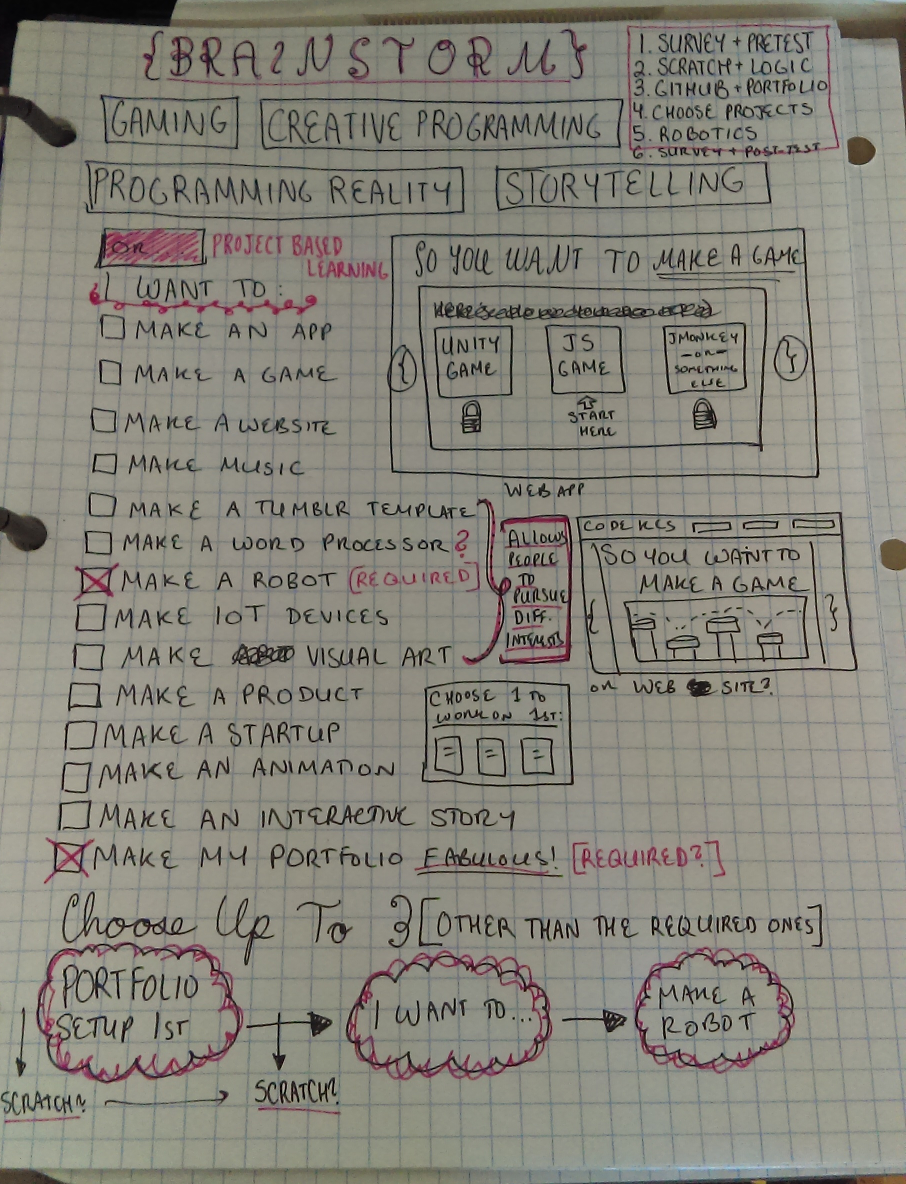 {BRAINSTORM}
1. SURVEY + PRETEST
2. SCRATCH + LOGIC
3. GITHUB + PORTFOLIO
4. CHOOSE PROJECTS
5. ROBOTICS
6. SURVEY + POST-TEST
GAMING
CREATIVE PROGRAMMING
PROGRAMMING REALITY
STORYTELLING
OR
PROJECT BASED
LEARNING
I WANT TO:
MAKE AN APP
MAKE A GAME
MAKE A WEBSITE
MAKE MUSIC
MAKE A TUMBLR TEMPLATE
MAKE A WORD PROCESSOR?
MAKE A ROBOT [REQUIRED]
MAKE IOT DEVICES
MAKE VISUAL ART
MAKE A PRODUCT
MAKE A STARTUP
MAKE AN ANIMATION
MAKE AN INTERACTIVE STORY
MAKE MY PORTFOLIO FABULOUS! [REQUIRED?]
SO YOU WANT TO MAKE A GAME
{
UNITY
GAME
JS
GAME
JMONKEY
-OR-
SOMETHING
ELSE
}
START
HERE
WEB APP
ALLOWS
PEOPLE
TO
PURSUE
DIFF.
INTERESTS
SO YOU WANT TO
MAKE A GAME
{ }
OR WEB SITE?
CHOOSE 1 TO
WORK ON 1ST:
Choose Up To 3 [OTHER THAN THE REQUIRED ONES]
PORTFOLIO
SETUP 1ST
I WANT TO...
MAKE A
ROBOT
SCRATCH?
SCRATCH?